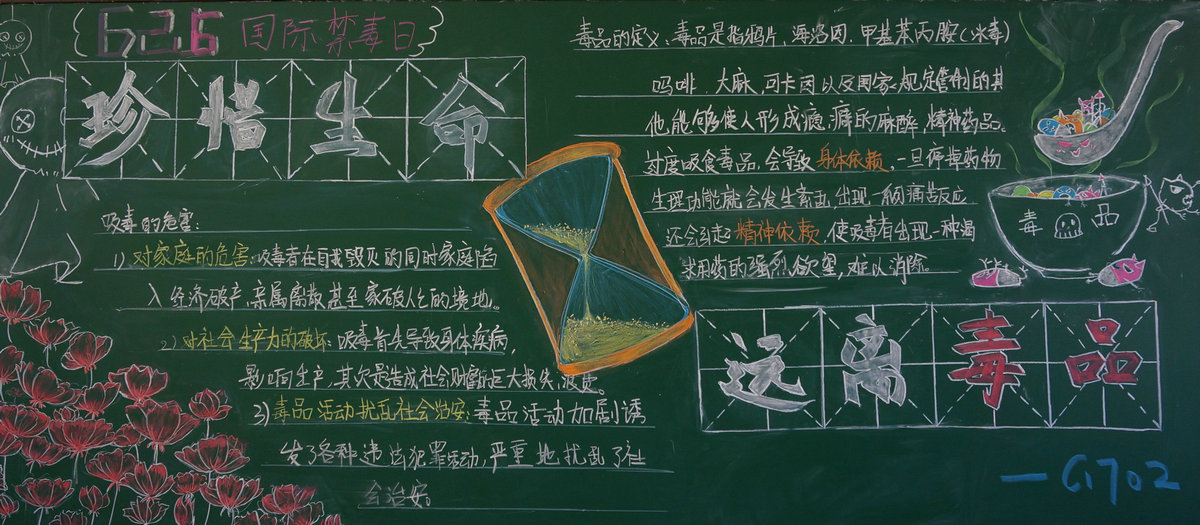 6.26 国际禁毒日
珍惜生命
吸毒的危害:
1) 对家庭的危害:吸毒者在自我毁灭的同时家庭陷
入经济破产、亲属离散甚至家破人亡的境地。
2) 对社会生产力的破坏:吸毒首先导致身体疾病,
影响生产,其次是造成社会财富的巨大损失、浪费。
3) 毒品活动扰乱社会治安:毒品活动加剧诱
发了各种违法犯罪活动,严重地扰乱了社
会治安。
毒品的定义:毒品是指鸦片、海洛因、甲基苯丙胺(冰毒)
吗啡、大麻、可卡因以及国家规定管制的其
他能够使人形成瘾癖的麻醉、精神药品。
过度吸食毒品,会导致身体依赖,一旦停掉药物
生理功能就会发生紊乱,出现一系列痛苦反应
还会引起精神依赖,使吸毒者出现一种渴
求用药的强烈欲望,难以消除。
毒品
远离毒品
一G1702